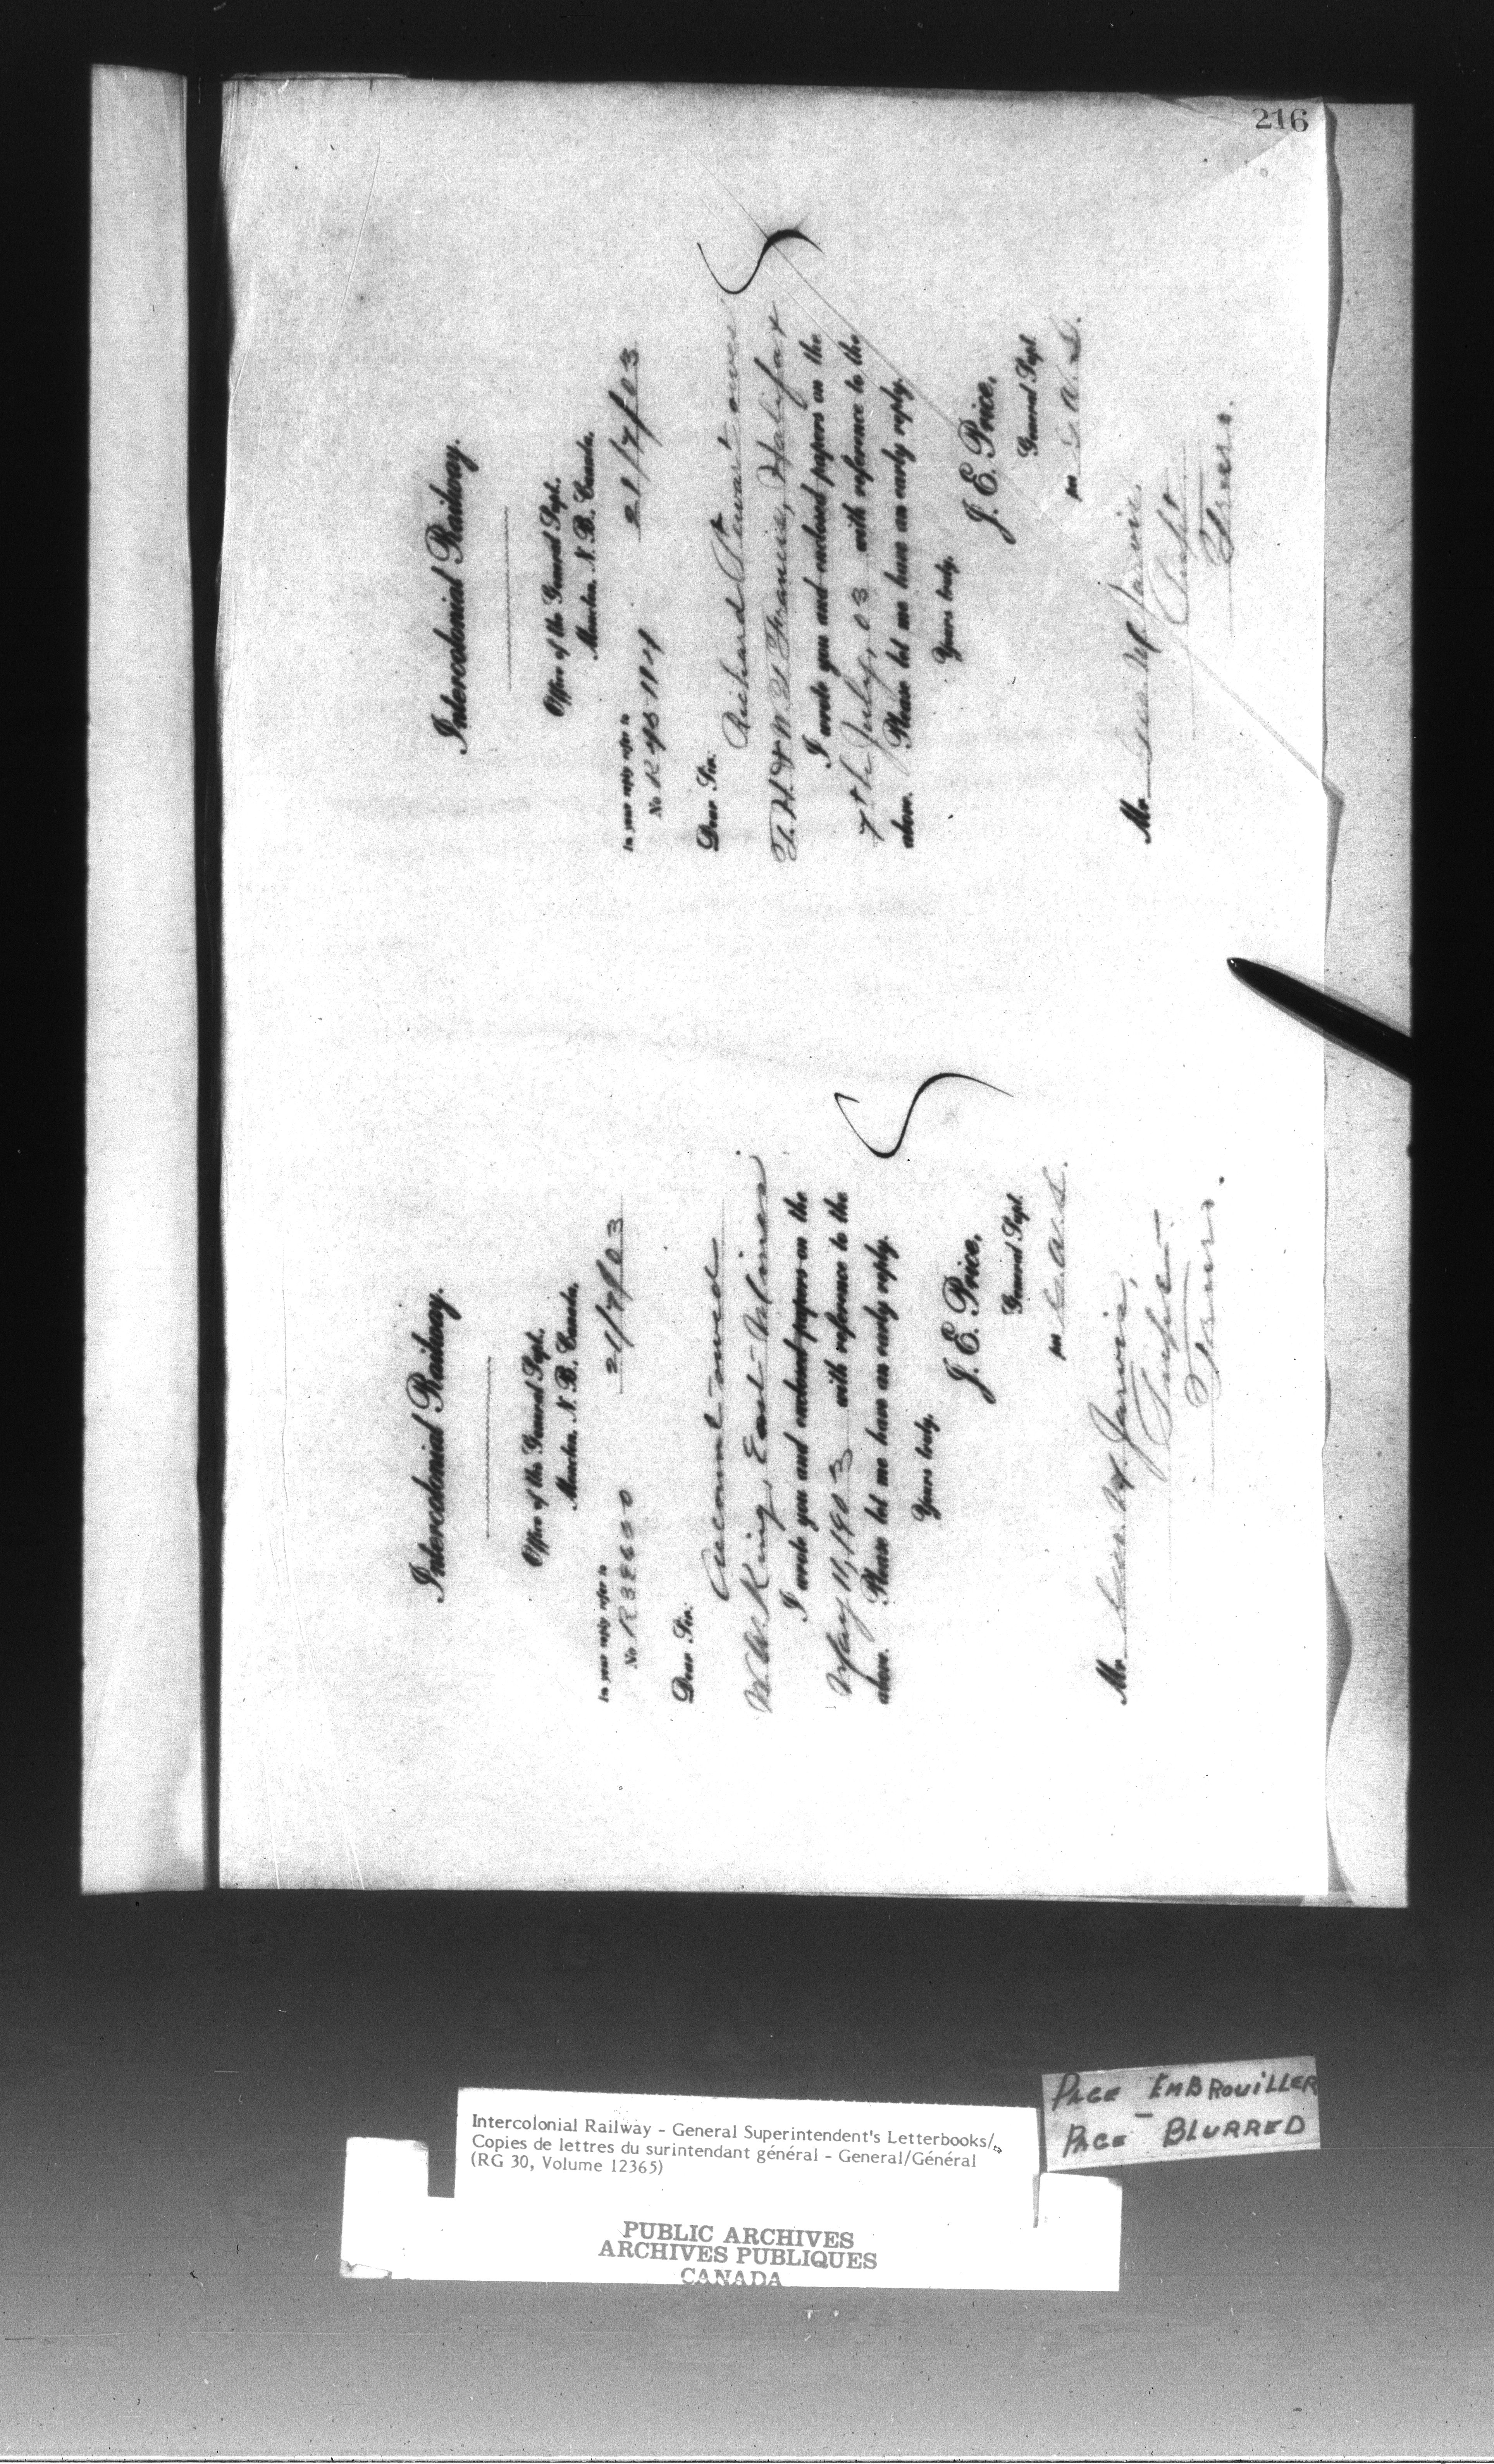 216
Intercolonial Railway.
Office of the General Supt.
Moncton, N. B. Canada.
21/7/03
In your reply refer to
No R 38660
Dear Sir:
Account owed
W. W. King, East Mines.
I wrote you and enclosed papers on the
May 11, 1903 with reference to the
above. Please let me have an early reply.
Yours truly,
J. E. Price,
General Supt
per
Mr. Geo. M. Jarvis,
Supt.
Truro.
Intercolonial Railway.
Office of the General Supt.
Moncton, N. B. Canada.
21/7/03
In your reply refer to
No R
Dear Sir:
Richard Stewart owes
T. H. & W. H. Francis, Halifax
I wrote you and enclosed papers on the
7th July, 03 with reference to the
above. Please let me have an early reply.
Yours truly,
J. E. Price,
General Supt
per
Mr. Geo. M. Jarvis.
Supt
Truro.
PAGE EMBROUILLER
PAGE - BLURRED
Intercolonial Railway - General Superintendent's Letterbooks/
Copies de lettres du surintendant général - General/Général
(RG 30, Volume 12365)
PUBLIC ARCHIVES
ARCHIVES PUBLIQUES
CANADA